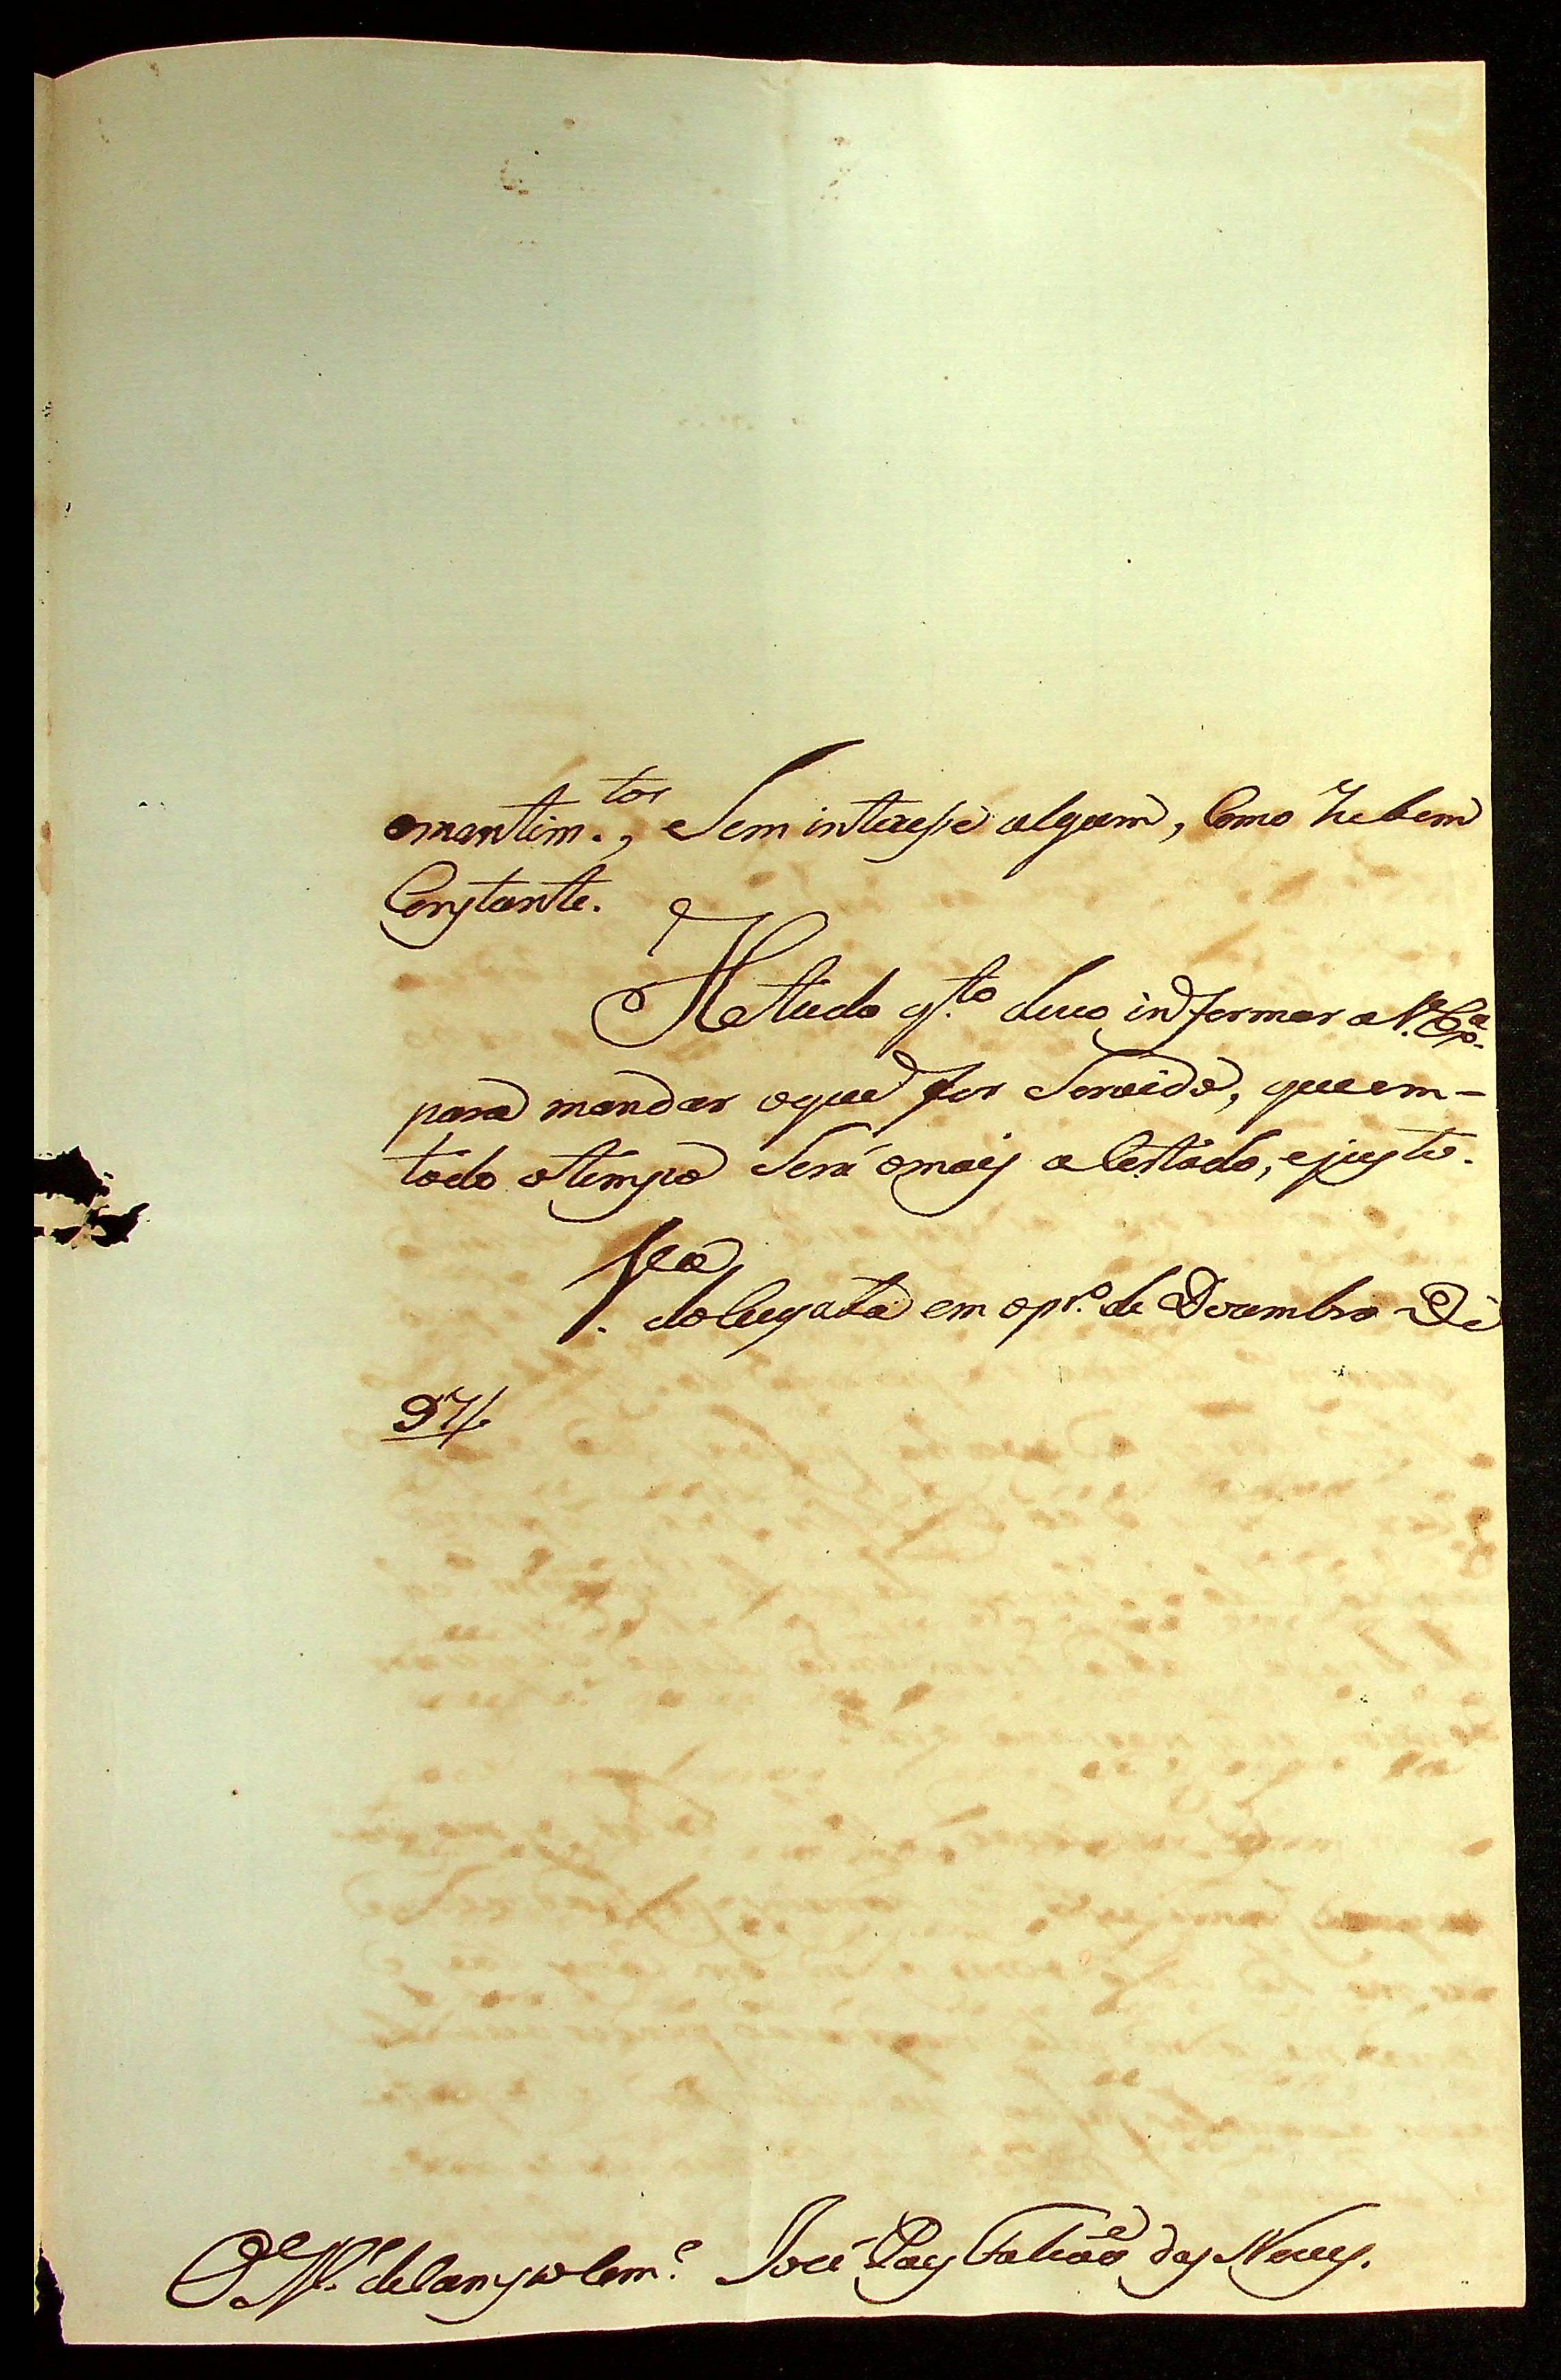 omantim.tos, eSem interesse algum, Como he bem
Constante.
He tudo q.to devo informar a V. Ex.a
para mandar oque for Servido, que em-
todo otempo Será omais acertado, e justo.
V.a do Cuyabá em o pr.o de Dezembro de
97//
O M.e de Campo Com.e José Paes Falcão das Neves.